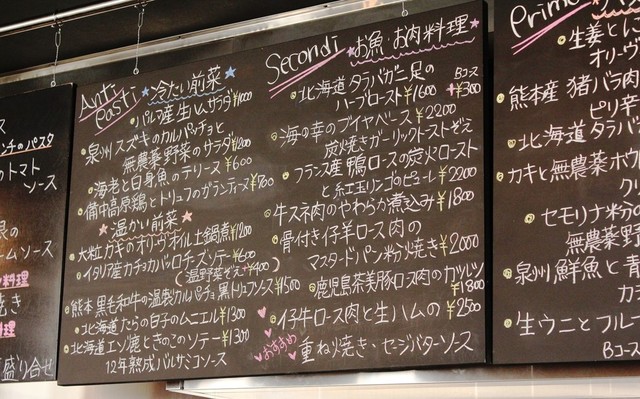 ス
ンチのパスタ
のトマト
ソース
根の
ームソース
料理
焼き
料理
盛り合せ
Anti Pasti
★冷たい前菜★
パルマ産生ハムサラダ ¥1000
泉州スズキのカルパッチョと
無農薬野菜のサラダ ¥1200
海老と白身魚のテリーヌ ¥600
備中高原鶏とトリュフのガランティーヌ ¥700
★温かい前菜★
大粒カキのオリーヴオイル土鍋煮 ¥1200
イタリア産カチョカバッロチーズソテー ¥600
(温野菜ぞえ+¥400)
熊本黒毛和牛の温製カルパッチョ黒トリュフソース ¥1500
北海道たらの白子のムニエル ¥1300
北海道エゾ鹿ときのこのソテー ¥1300
12年熟成バルサミコソース
Secondi
★お魚・お肉料理★
北海道タラバガニ足の
Bコース
ハーブロースト ¥1600 +¥300
海の幸のブイヤベース ¥2200
炭火焼きガーリックトーストぞえ
フランス産鴨ロースの炭火ロースト
と紅玉リンゴのピューレ ¥2200
牛スネ肉のやわらか煮込み ¥1800
骨付き仔羊ロース肉の
マスタードパン粉焼き ¥2000
鹿児島茶美豚ロース肉のカツレツ
¥1800
仔牛ロース肉と生ハムの ¥2500
おすすめ
重ね焼き・セージバターソース
Primo
生姜とんこ
オリーヴ
熊本産 猪バラ肉
ピリ辛
北海道タラバ
カキと無農薬ホウ
クリ
セモリナ粉
無農薬野
泉州鮮魚と青
カラ
生ウニとフルー
Bコース